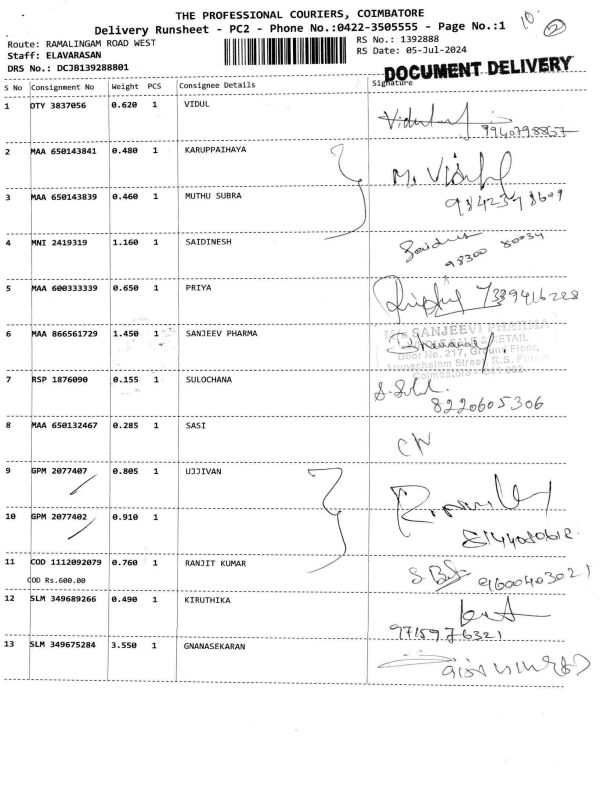 THE PROFESSIONAL COURIERS, COIMBATORE
Delivery Runsheet - PC2 - Phone No.:0422-3505555 - Page No.:1
10
2
Route: RAMALINGAM ROAD WEST
RS No.: 1392888
Staff: ELAVARASAN
RS Date: 05-Jul-2024
DRS No.: DCJB139288801
DOCUMENT DELIVERY
S No Consignment No Weight PCS Consignee Details Signature
1 OTY 3837056 0.620 1 VIDUL
9940798857
2 MAA 650143841 0.480 1 KARUPPAIHAYA
3 MAA 650143839 0.460 1 MUTHU SUBRA
4 MNI 2419319 1.160 1 SAIDINESH
98300 80034
5 MAA 600333339 0.650 1 PRIYA
7339416228
6 MAA 866561729 1.450 1 SANJEEV PHARMA
M/s SANJEEVI PHARMA
WHOLESALE & RETAIL
Door No. 217, Ground Floor,
Arunachalam Street, R.S. Puram
Coimbatore - 641 002
7 RSP 1876090 0.155 1 SULOCHANA
8220605306
8 MAA 650132467 0.285 1 SASI
9 GPM 2077407 0.805 1 UJJIVAN
10 GPM 2077402 0.910 1
11 COD 1112092079 0.760 1 RANJIT KUMAR
9600403021
COD Rs.600.00
12 SLM 349689266 0.490 1 KIRUTHIKA
9715976321
13 SLM 349675284 3.550 1 GNANASEKARAN